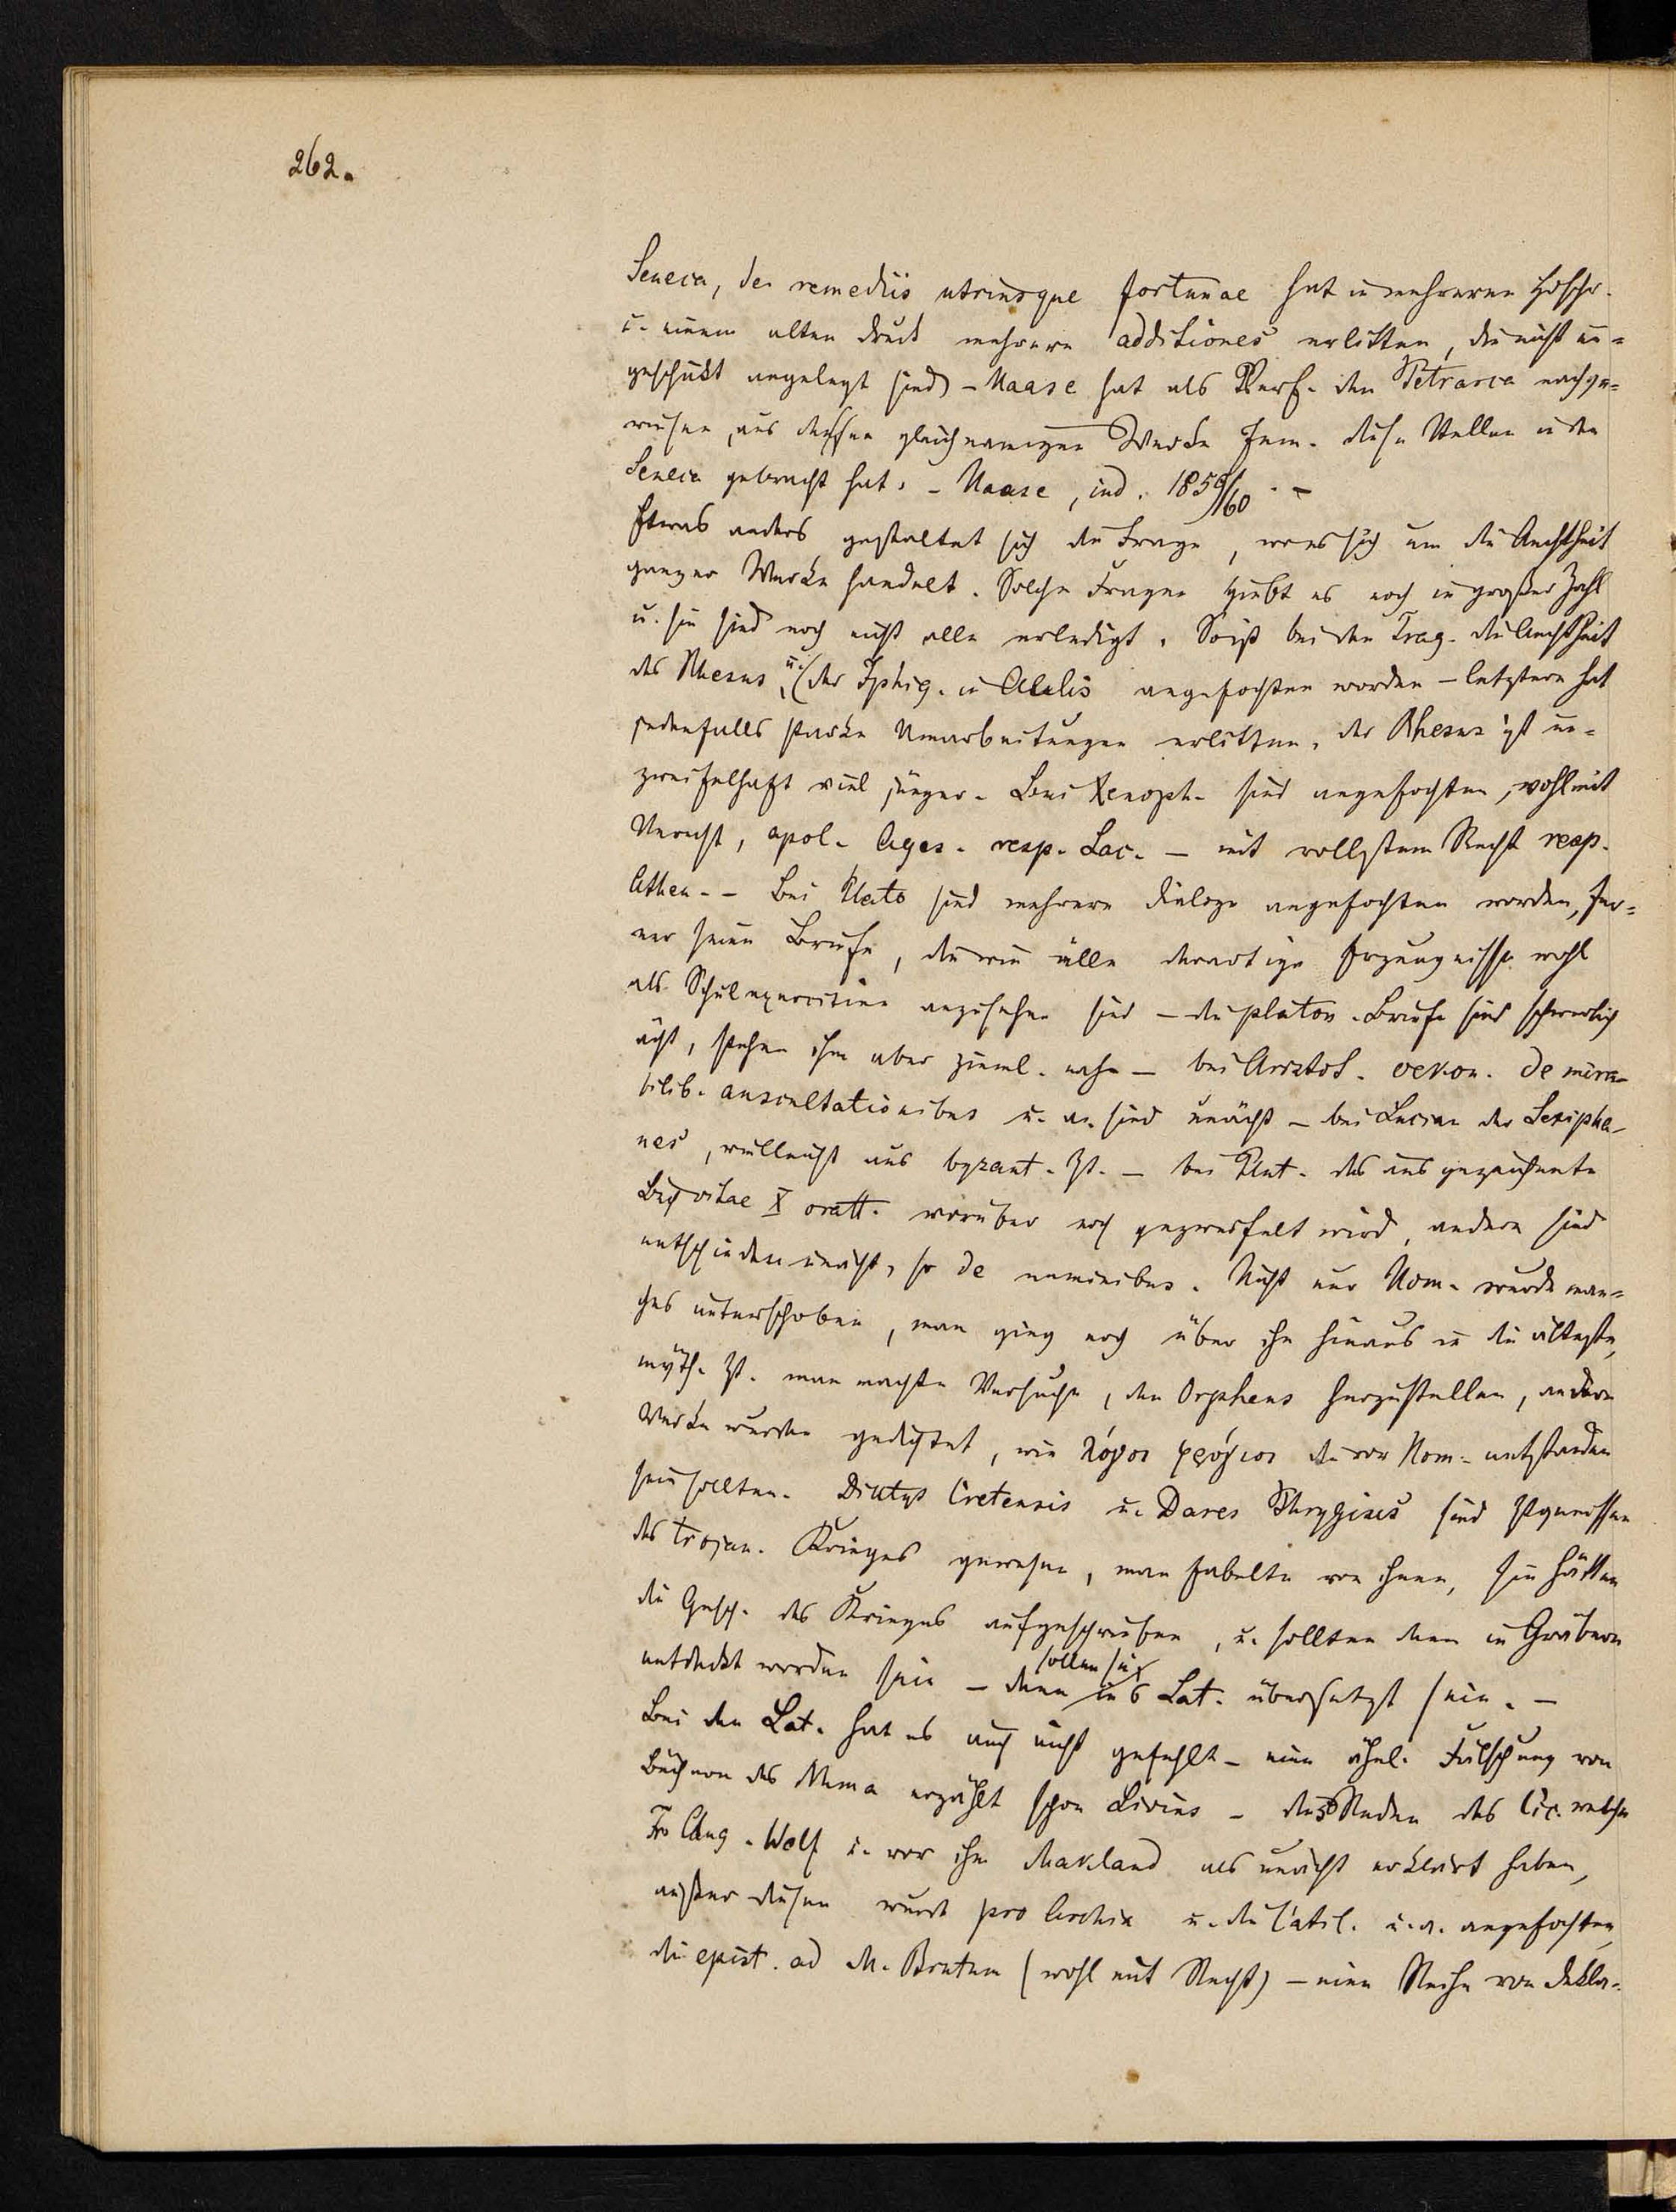 262.
Seneca, de remediis utriusque fortunae hat in mehreren Hdschr.
u. einem alten Druck mehrere additiones erlitten, die nicht un=
geschickt angelegt sind – Haase hat als Verf. den Petrarca nachge=
wiesen, aus dessen gleichnamigen Werke Jem. diese Stellen in den
Seneca gebracht hat. – Haase, ind. 1859/60. –
Etwas anders gestaltet sich die Frage, wo es sich um die Aechtheit
ganzer Werke handelt. Solche Fragen giebt es noch in großer Zahl
u. sie sind noch nicht alle erledigt. So ist bei den Trag. die Aechtheit
des Rhesus u. (der Iphig. in Aulis angefochten worden – letztere hat
jedenfalls starke Umarbeitungen erlitten, der Rhesus ist un=
zweifelhaft viel jünger. Bei Xenoph. sind angefochten, wohl mit
Unrecht, apol. Ages. resp. Lac. – mit vollstem Recht resp.
Athen. – Bei Plato sind mehrere Dialoge angefochten worden, fer=
ner seine Briefe, die wie alle derartige Erzeugnisse wohl
als Schulexercitien anzusehen sind – die platon. Briefe sind schwerlich
ächt, stehen ihm aber zieml. nahe – bei Aristot. oekon. de mira-
bilib. auscultationibus u. a. sind unächt – bei Lucian der Lexipha-
nes, vielleicht aus byzant. Zt. – bei Plut. das ausgezeichnete
Buch vitae X oratt. worüber noch gezweifelt wird, andere sind
entschieden unächt, so de numinibus. Nicht nur Hom. wurde man=
ches untergeschoben, man ging noch über ihn hinaus in die älteste,
myth. Zt. man machte Versuche, den Orpheus herzustellen, andere
Werke wurden gedichtet, wie λόγοι φρύγιοι die vor Hom. entstanden
sein sollten. Dictys Cretensis u. Dares Phrygius sind Ztgenossen
des trojan. Krieges gewesen, man fabelte von ihnen, sie hätten
die Gesch. des Krieges aufgeschrieben, u. sollten dann in Gräbern
entdeckt worden sein – dann sollen sie ins Lat. übersetzt sein. –
Bei den Lat. hat es auch nicht gefehlt – eine ähnl. Fälschung von
Büchern des Numa erzählt schon Livius – die 5 Reden des Cic. welche
Fr. Aug. Wolf u. vor ihm Markland als unächt erklärt haben,
außer diesen wurde pro Archia u. die Catil. u. a. angefochten,
die epist. ad M. Brutum (wohl mit Recht) – eine Reihe von Dekla-